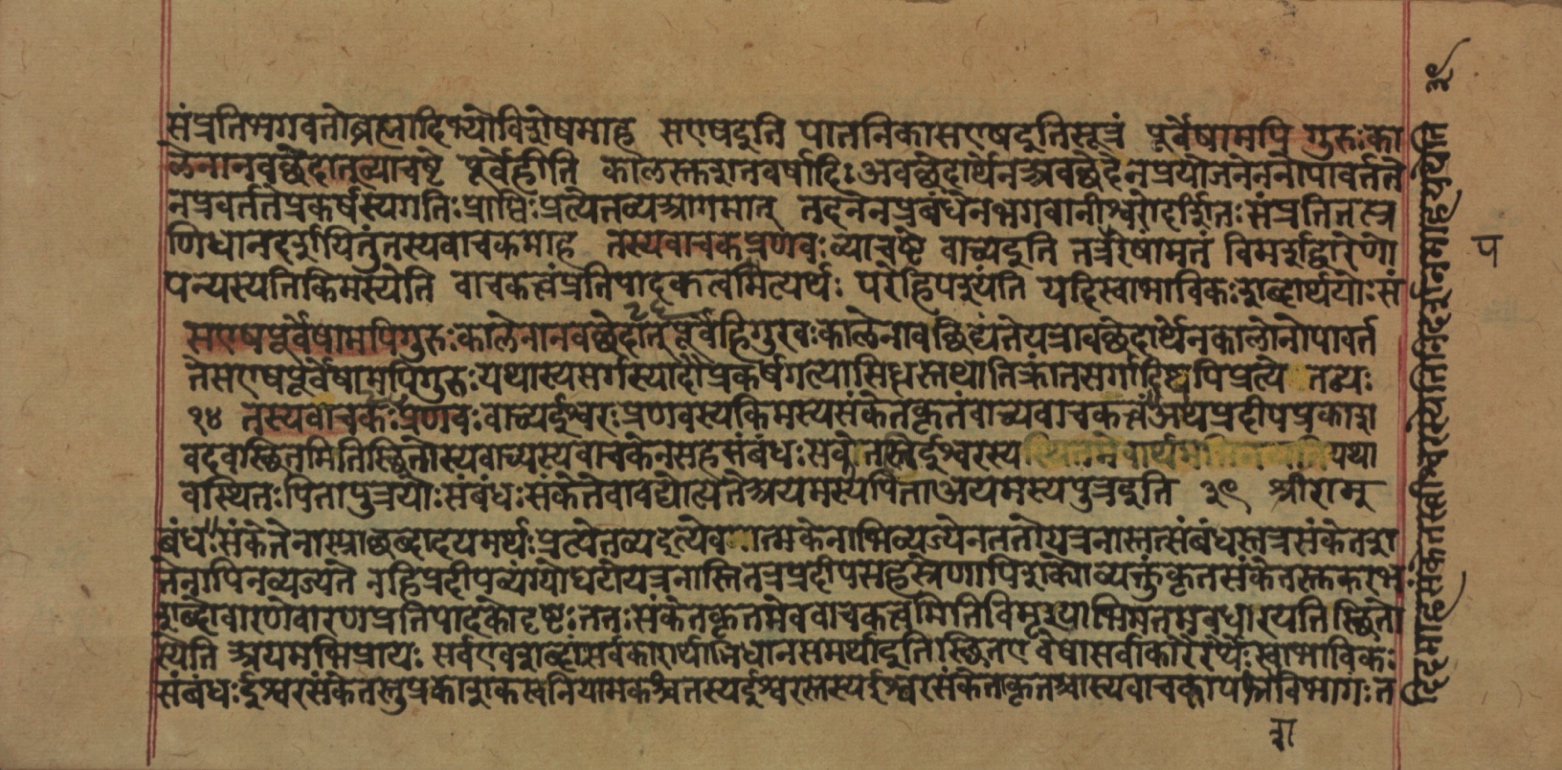 संप्रतिभगवतोब्रह्मादिभ्योविशेषमाह सएषइति पातनिकासएषइतिसूत्रं पूर्वेषामपि गुरुःका
लेनानवच्छेदात्व्याचष्टे पूर्वेहीति कालस्तुशतवर्षादिः अवच्छेदार्थेनअवच्छेदेनप्रयोजनेननोपावर्तते
नप्रवर्ततेप्रकर्षस्यगतिःप्राप्तिःप्रत्येतव्यआगमात् तदनेनप्रबंधेनभगवानीश्वरोदर्शितःसंप्रतितत्प्र
णिधानदर्शयितुंतस्यवाचकमाह तस्यवाचकप्रणवःव्याचष्टे वाच्यइति तत्रपरेषांमतं विमर्शद्वारेणो
पन्यस्यतिकिमस्येति वाचकत्वंप्रतिपादकत्वमित्यर्थः परेहिपश्यंति यदिस्वाभाविकःशब्दार्थयोःसं
सएषपूर्वेषामपिगुरुःकालेनानवच्छेदात् पूर्वेहिगुरवःकालेनावच्छिद्यंतेयत्रावच्छेदार्थेनकालोनोपावर्त
तेसएषपूर्वेषामपिगुरुःयथास्यसर्गस्यादौप्रकर्षगत्यासिद्धस्तथातिक्रांतसर्गादिष्वपिप्रत्ये तव्यः
१४ तस्यवाचकःप्रणवःवाच्यईश्वरःप्रणवस्यकिमस्यसंकेतकृतंवाच्यवाचकत्वंअथप्रदीपप्रकाश
वदवस्थितमितिस्थितोस्यवाच्यस्यवाचकेनसहसंबंधःसंकेतस्त्वीश्वरस्यस्थितमेवार्थमभिनयतियथा
वस्थितःपितापुत्रयोःसंबंधःसंकेतेनावद्योत्यतेअयमस्यपिताअयमस्यपुत्रइति ३९ श्रीराम्
बंधःसंकेतेनास्माच्छब्दादयमर्थःप्रत्येतव्यइत्येवमात्मकेनाभिव्यज्येतततोयत्रनास्तत्संबंधस्तत्रसंकेतश
तेनापिनव्यज्यते नहिप्रदीपव्यंग्योघटोयत्रनास्तितत्रप्रदीपसहस्रेणापिशक्योव्यक्तुंकृतसंकेतस्तुकरभ
शब्दोवारणेवारणप्रतिपादकोदृष्टःततःसंकेतकृतमेववाचकत्वमितिविमृश्याभिमतमवधारयतिस्थितो
स्येति अयमभिप्रायः सर्वएवशब्दाःसर्वाकारार्थाभिधानसमर्थाइतिस्थितएवैषांसर्वाकारैरर्थैःस्वाभाविकः
संबंधःईश्वरसंकेतस्तुप्रकाशकश्चनियामकश्चतस्यईश्वरसंकेताकृतश्चास्यवाचकापभ्रंशविभागःत
दिदमाहसंकेतस्त्वीश्वरस्येतिनिदर्शनमाहयथेति
३९
प
श